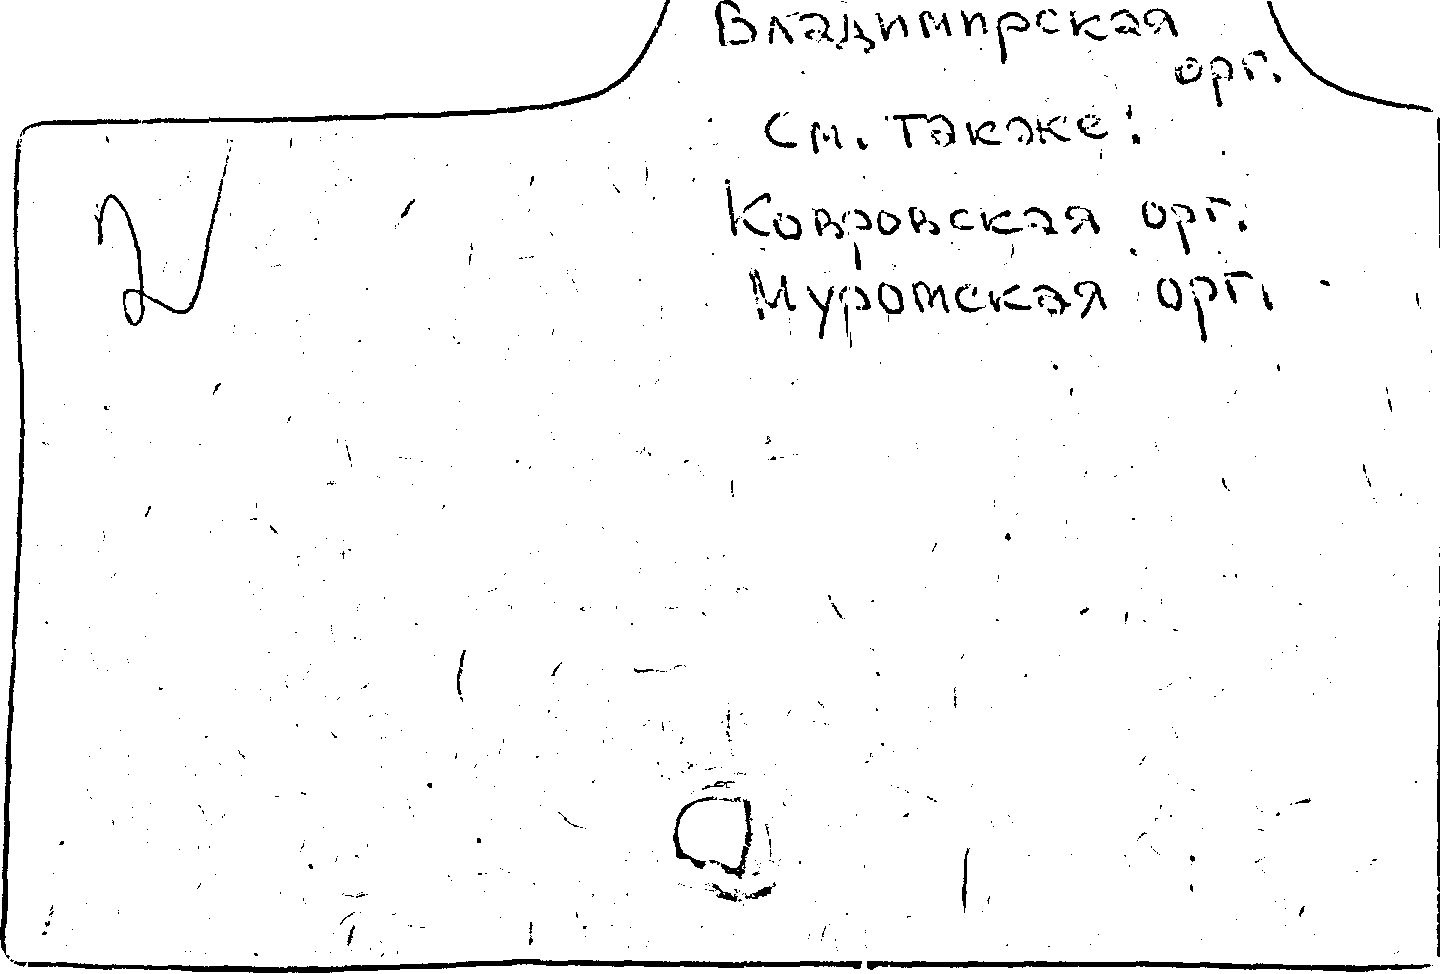 Владимирская
орг.
См. также:
Ковровская орг.
Муромская орг.